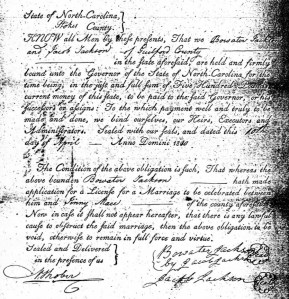 State of North-Carolina,
Stokes County.
KNOW all Men by these presents, That we Bowater
and Jacob Jackson of Guilford County
in the state aforesaid, are held and firmly
bound unto the Governor of the State of North-Carolina for the
time being, in the just and full sum of Five Hundred
current money of this state, to be paid to the said Governor, his
successors or assigns: To the which payment well and truly to be
made and done, we bind ourselves, our Heirs, Executors and
Administrators. Sealed with our seals, and dated this
day of April Anno Domini
The Condition of the above obligation is such, That whereas the
above bounden Bowater Jackson hath made
application for a License for a Marriage to be celebrated between
him and of the county
Now in case it shall not appear hereafter, that there is any lawful
cause to obstruct the said marriage, then the above obligation to be
void, otherwise to remain in full force and virtue.
Sealed and Delivered
in the presence of us
Bowater Jackson
by Jacob Jackson
Jacob Jackson